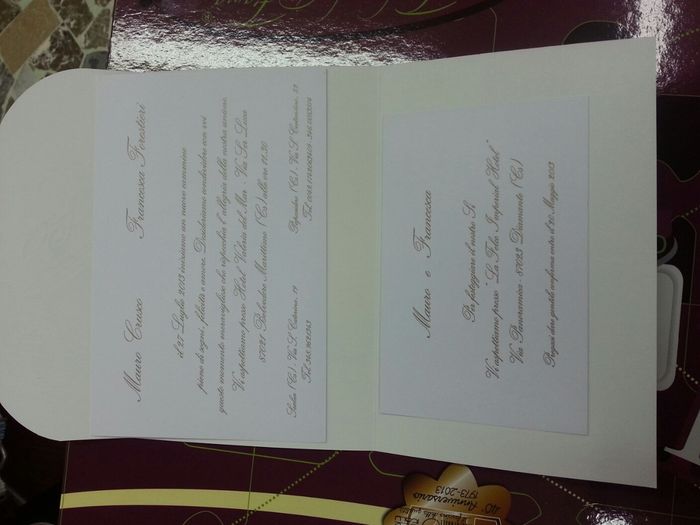 Mauro Crusco Francesca Forestieri
il 27 Luglio 2013 iniziamo un nuovo cammino
pieno di sogni, felicità e amore. Desideriamo condividere con voi
questo momento meraviglioso che riguarda l'allegria della nostra unione.
Vi aspettiamo presso Hotel Valeria del Mar - Via Sen. Luca
87021 Belvedere Marittimo (Cs) alle ore 11.30
(Cs) Via S. Caterina, 19
(Cs) Via S. Caterina, 22
Tel.
Tel.
Mauro e Francesca
Per festeggiare il nostro Sì
Vi aspettiamo presso "La Felce Imperial Hotel"
Via Panoramica - 87023 Diamante (Cs)
Pregasi dare gentile conferma entro il 20 Maggio 2013
40° Anniversario
1973-2013